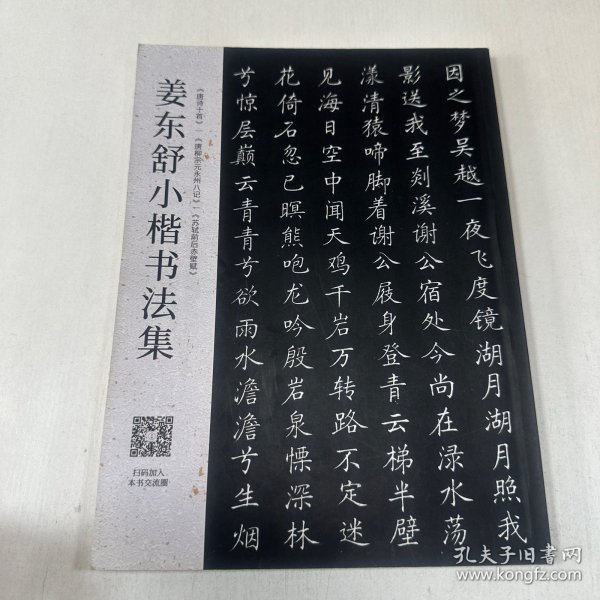 姜东舒小楷书法集
《唐诗十首》—《唐柳宗元永州八记》—《苏轼前后赤壁赋》
扫码加入
本书交流圈
因之梦吴越一夜飞度镜湖月湖月照我
影送我至剡溪谢公宿处今尚在渌水荡
漾清猿啼脚着谢公屐身登青云梯半壁
见海日空中闻天鸡千岩万转路不定迷
花倚石忽已暝熊咆龙吟殷岩泉慄深林
兮惊层巅云青青兮欲雨水澹澹兮生烟
孔夫子旧书网
www.kongfz.com